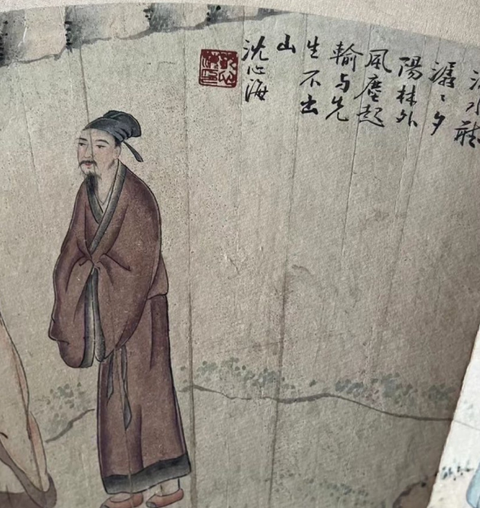 水聽
潺〻夕
陽林外
風塵起
輸与先
生不出
山
沈心海